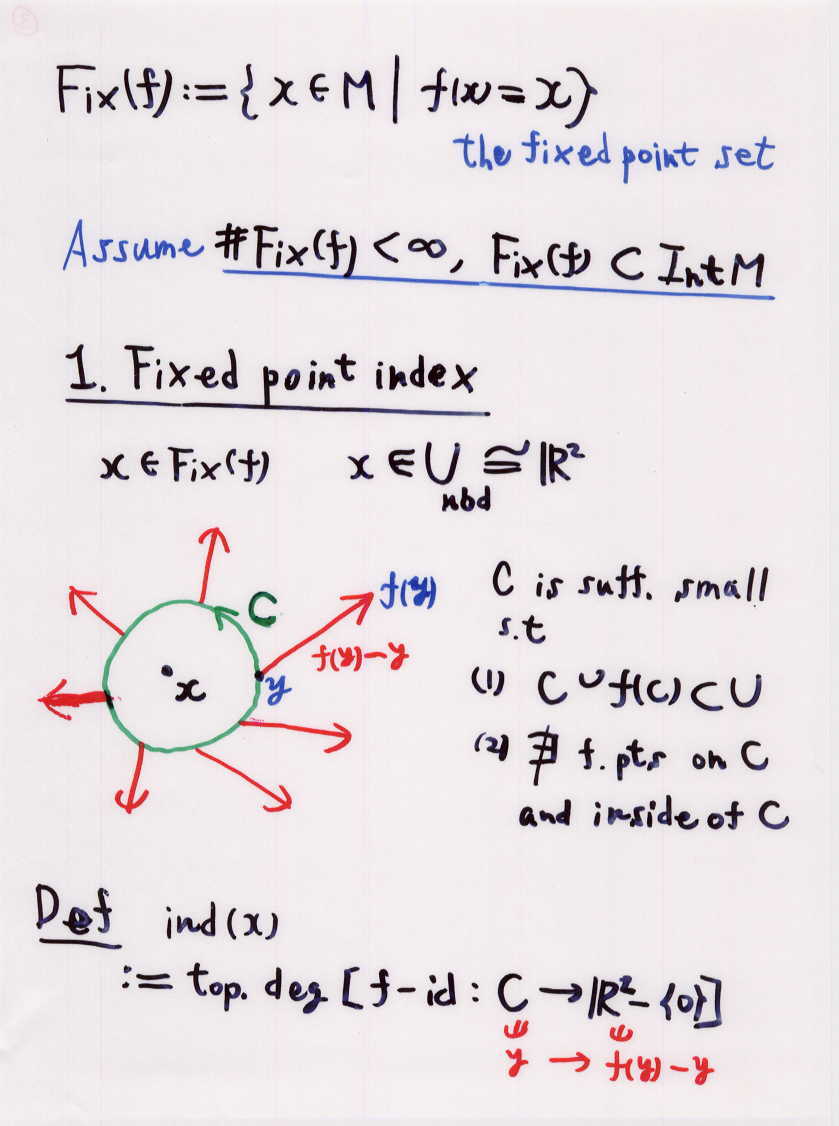 Fix(f):={x∈M | f(x)=x}
the fixed point set
Assume #Fix(f)<∞, Fix(f)⊂Int M
1. Fixed point index
x∈Fix(f) x∈U≅ℝ²
nbd
C
f(y)
f(y)-y
x
y
C is suff. small
s.t
(1) C∪f(C)⊂U
(2) ∄ f.pts on C
and inside of C
Def ind(x)
:= top.deg[f-id: C→ℝ²-{0}]
y → f(y)-y